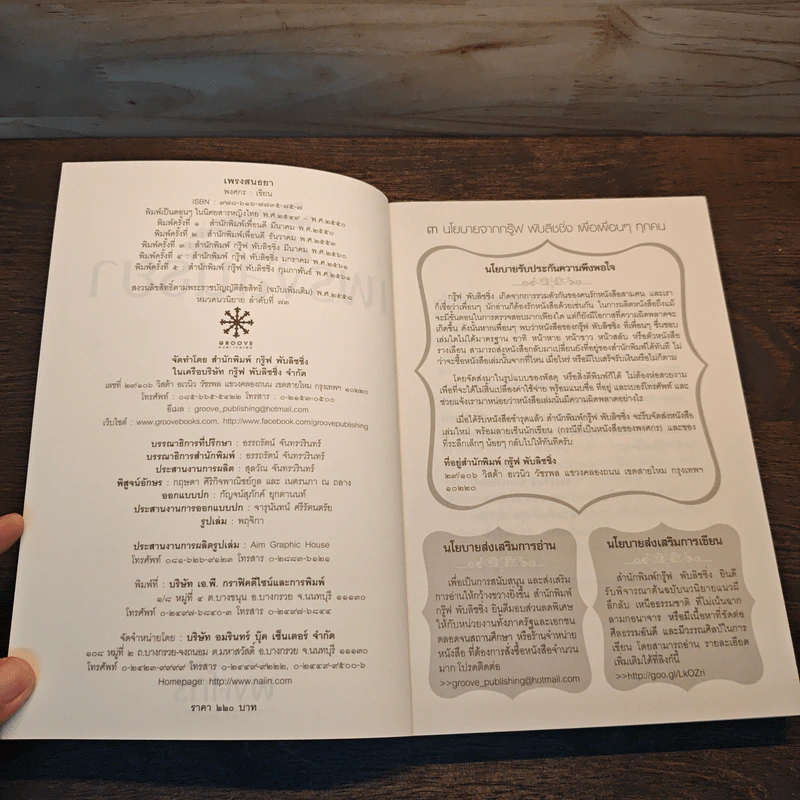 เพรงสนธยา
พงศกร : เขียน
ISBN : ๙๗๘-๖๑๖-๗๗๓๕-๗๕-๗
พิมพ์เป็นตอนๆ ในนิตยสารหญิงไทย พ.ศ.๒๕๔๙ – พ.ศ.๒๕๕๐
พิมพ์ครั้งที่ ๑ : สำนักพิมพ์เพื่อนดี มีนาคม พ.ศ.๒๕๕๐
พิมพ์ครั้งที่ ๒ : สำนักพิมพ์เพื่อนดี ธันวาคม พ.ศ.๒๕๕๓
พิมพ์ครั้งที่ ๓ : สำนักพิมพ์ กรู๊ฟ พับลิชชิ่ง มีนาคม พ.ศ.๒๕๖๐
พิมพ์ครั้งที่ ๔ : สำนักพิมพ์ กรู๊ฟ พับลิชชิ่ง มกราคม พ.ศ.๒๕๖๑
พิมพ์ครั้งที่ ๕ : สำนักพิมพ์ กรู๊ฟ พับลิชชิ่ง กุมภาพันธ์ พ.ศ.๒๕๖๑
สงวนลิขสิทธิ์ตามพระราชบัญญัติลิขสิทธิ์ (ฉบับเพิ่มเติม) พ.ศ.๒๕๕๘
หมวดนวนิยาย ลำดับที่ ๗๓
GROOVE
PUBLISHING
จัดทำโดย สำนักพิมพ์ กรู๊ฟ พับลิชชิ่ง
ในเครือบริษัท กรู๊ฟ พับลิชชิ่ง จำกัด
เลขที่ ๒๙/๑๐๖ วิสต้า อเวนิว วัชรพล แขวงคลองถนน เขตสายไหม กรุงเทพฯ ๑๐๒๒๐
โทรศัพท์ : ๐๘๕-๖๖๕-๕๔๒๒ โทรสาร : ๐-๒๑๕๓-๐๕๐๐
อีเมล : groove_publishing@hotmail.com
เว็บไซต์ : www.groovebooks.com, http://www.facebook.com/groovepublishing
บรรณาธิการที่ปรึกษา : อรรถรัตน์ จันทรวรินทร์
บรรณาธิการสำนักพิมพ์ : อรรถรัตน์ จันทรวรินทร์
ประสานงานการผลิต : สุดวัณ จันทรวรินทร์
พิสูจน์อักษร : กฤษดา ศิริกิจพาณิชย์กูล และ เนตรนภา ณ ถลาง
ออกแบบปก : กัญจน์สุภัคค์ ยุกตานนท์
ประสานงานการออกแบบปก : จารุนันทน์ ศรีรัตนตรัย
รูปเล่ม : พฤจิกา
ประสานงานการผลิตรูปเล่ม : Aim Graphic House
โทรศัพท์ ๐๘๑-๖๒๖-๙๑๒๓ โทรสาร ๐-๒๘๘๓-๖๑๒๑
พิมพ์ที่ : บริษัท เอ.พี. กราฟิคดีไซน์และการพิมพ์
๑/๘ หมู่ที่ ๔ ต.บางขนุน อ.บางกรวย จ.นนทบุรี ๑๑๑๓๐
โทรศัพท์ ๐-๒๔๙๗-๖๘๔๐-๓ โทรสาร ๐-๒๔๙๗-๖๘๔๔
จัดจำหน่ายโดย : บริษัท อมรินทร์ บุ๊ค เซ็นเตอร์ จำกัด
๑๐๘ หมู่ที่ ๒ ถ.บางกรวย-จงถนอม ต.มหาสวัสดิ์ อ.บางกรวย จ.นนทบุรี ๑๑๑๓๐
โทรศัพท์ ๐-๒๔๒๓-๙๙๙๙ โทรสาร ๐-๒๔๔๙-๙๒๒๒, ๐-๒๔๔๙-๙๕๐๐-๖
Homepage: http://www.naiin.com
ราคา ๒๒๐ บาท
๓ นโยบายจากกรู๊ฟ พับลิชชิ่ง เพื่อเพื่อนๆ ทุกคน
นโยบายรับประกันความพึงพอใจ
กรู๊ฟ พับลิชชิ่ง เกิดจากการรวมตัวกันของคนรักหนังสือสามคน และเรา
ก็เชื่อว่าเพื่อนๆ นักอ่านก็ต้องรักหนังสือด้วยเช่นกัน ในการผลิตหนังสือถึงแม้
จะมีขั้นตอนในการตรวจสอบมากเพียงใด แต่ก็ยังมีโอกาสที่ความผิดพลาดจะ
เกิดขึ้น ดังนั้นหากเพื่อนๆ พบว่าหนังสือของกรู๊ฟ พับลิชชิ่ง ที่เพื่อนๆ ชื่นชอบ
เล่มใดไม่ได้มาตรฐาน อาทิ หน้าหาย หน้าขาว หน้าสลับ หรือตัวหนังสือ
รางเลือน สามารถส่งหนังสือกลับมาเปลี่ยนยังที่อยู่ของสำนักพิมพ์ได้ทันที ไม่
ว่าจะซื้อหนังสือเล่มนั้นจากที่ไหน เมื่อไหร่ หรือมีใบเสร็จรับเงินหรือไม่ก็ตาม
โดยจัดส่งมาในรูปแบบของพัสดุ หรือสิ่งตีพิมพ์ก็ได้ ไม่ต้องห่อสวยงาม
เพื่อที่จะได้ไม่สิ้นเปลืองค่าใช้จ่าย พร้อมแนบชื่อ ที่อยู่ และเบอร์โทรศัพท์ และ
ช่วยแจ้งเรามาหน่อยว่าหนังสือเล่มนั้นมีความผิดพลาดอย่างไร
เมื่อได้รับหนังสือชำรุดแล้ว สำนักพิมพ์กรู๊ฟ พับลิชชิ่ง จะรีบจัดส่งหนังสือ
เล่มใหม่ พร้อมลายเซ็นนักเขียน (กรณีที่เป็นหนังสือของพงศกร) และของ
ที่ระลึกเล็กๆ น้อยๆ กลับไปให้ทันทีครับ
ที่อยู่สำนักพิมพ์ กรู๊ฟ พับลิชชิ่ง
๒๙/๑๐๖ วิสต้า อเวนิว วัชรพล แขวงคลองถนน เขตสายไหม กรุงเทพฯ
๑๐๒๒๐
นโยบายส่งเสริมการอ่าน
เพื่อเป็นการสนับสนุน และส่งเสริม
การอ่านให้กว้างขวางยิ่งขึ้น สำนักพิมพ์
กรู๊ฟ พับลิชชิ่ง ยินดีมอบส่วนลดพิเศษ
ให้กับหน่วยงานทั้งภาครัฐและเอกชน
ตลอดจนสถานศึกษา หรือร้านจำหน่าย
หนังสือ ที่ต้องการสั่งซื้อหนังสือจำนวน
มาก โปรดติดต่อ
>>groove_publishing@hotmail.com
นโยบายส่งเสริมการเขียน
สำนักพิมพ์กรู๊ฟ พับลิชชิ่ง ยินดี
รับพิจารณาต้นฉบับนวนิยายแนวผี
ลึกลับ เหนือธรรมชาติ ที่ไม่เน้นฉาก
ลามกอนาจาร หรือมีเนื้อหาที่ขัดต่อ
ศีลธรรมอันดี และมีวรรณศิลป์ในการ
เขียน โดยสามารถอ่าน รายละเอียด
เพิ่มเติมได้ที่ลิงก์นี้
>>http://goo.gl/LkOZri